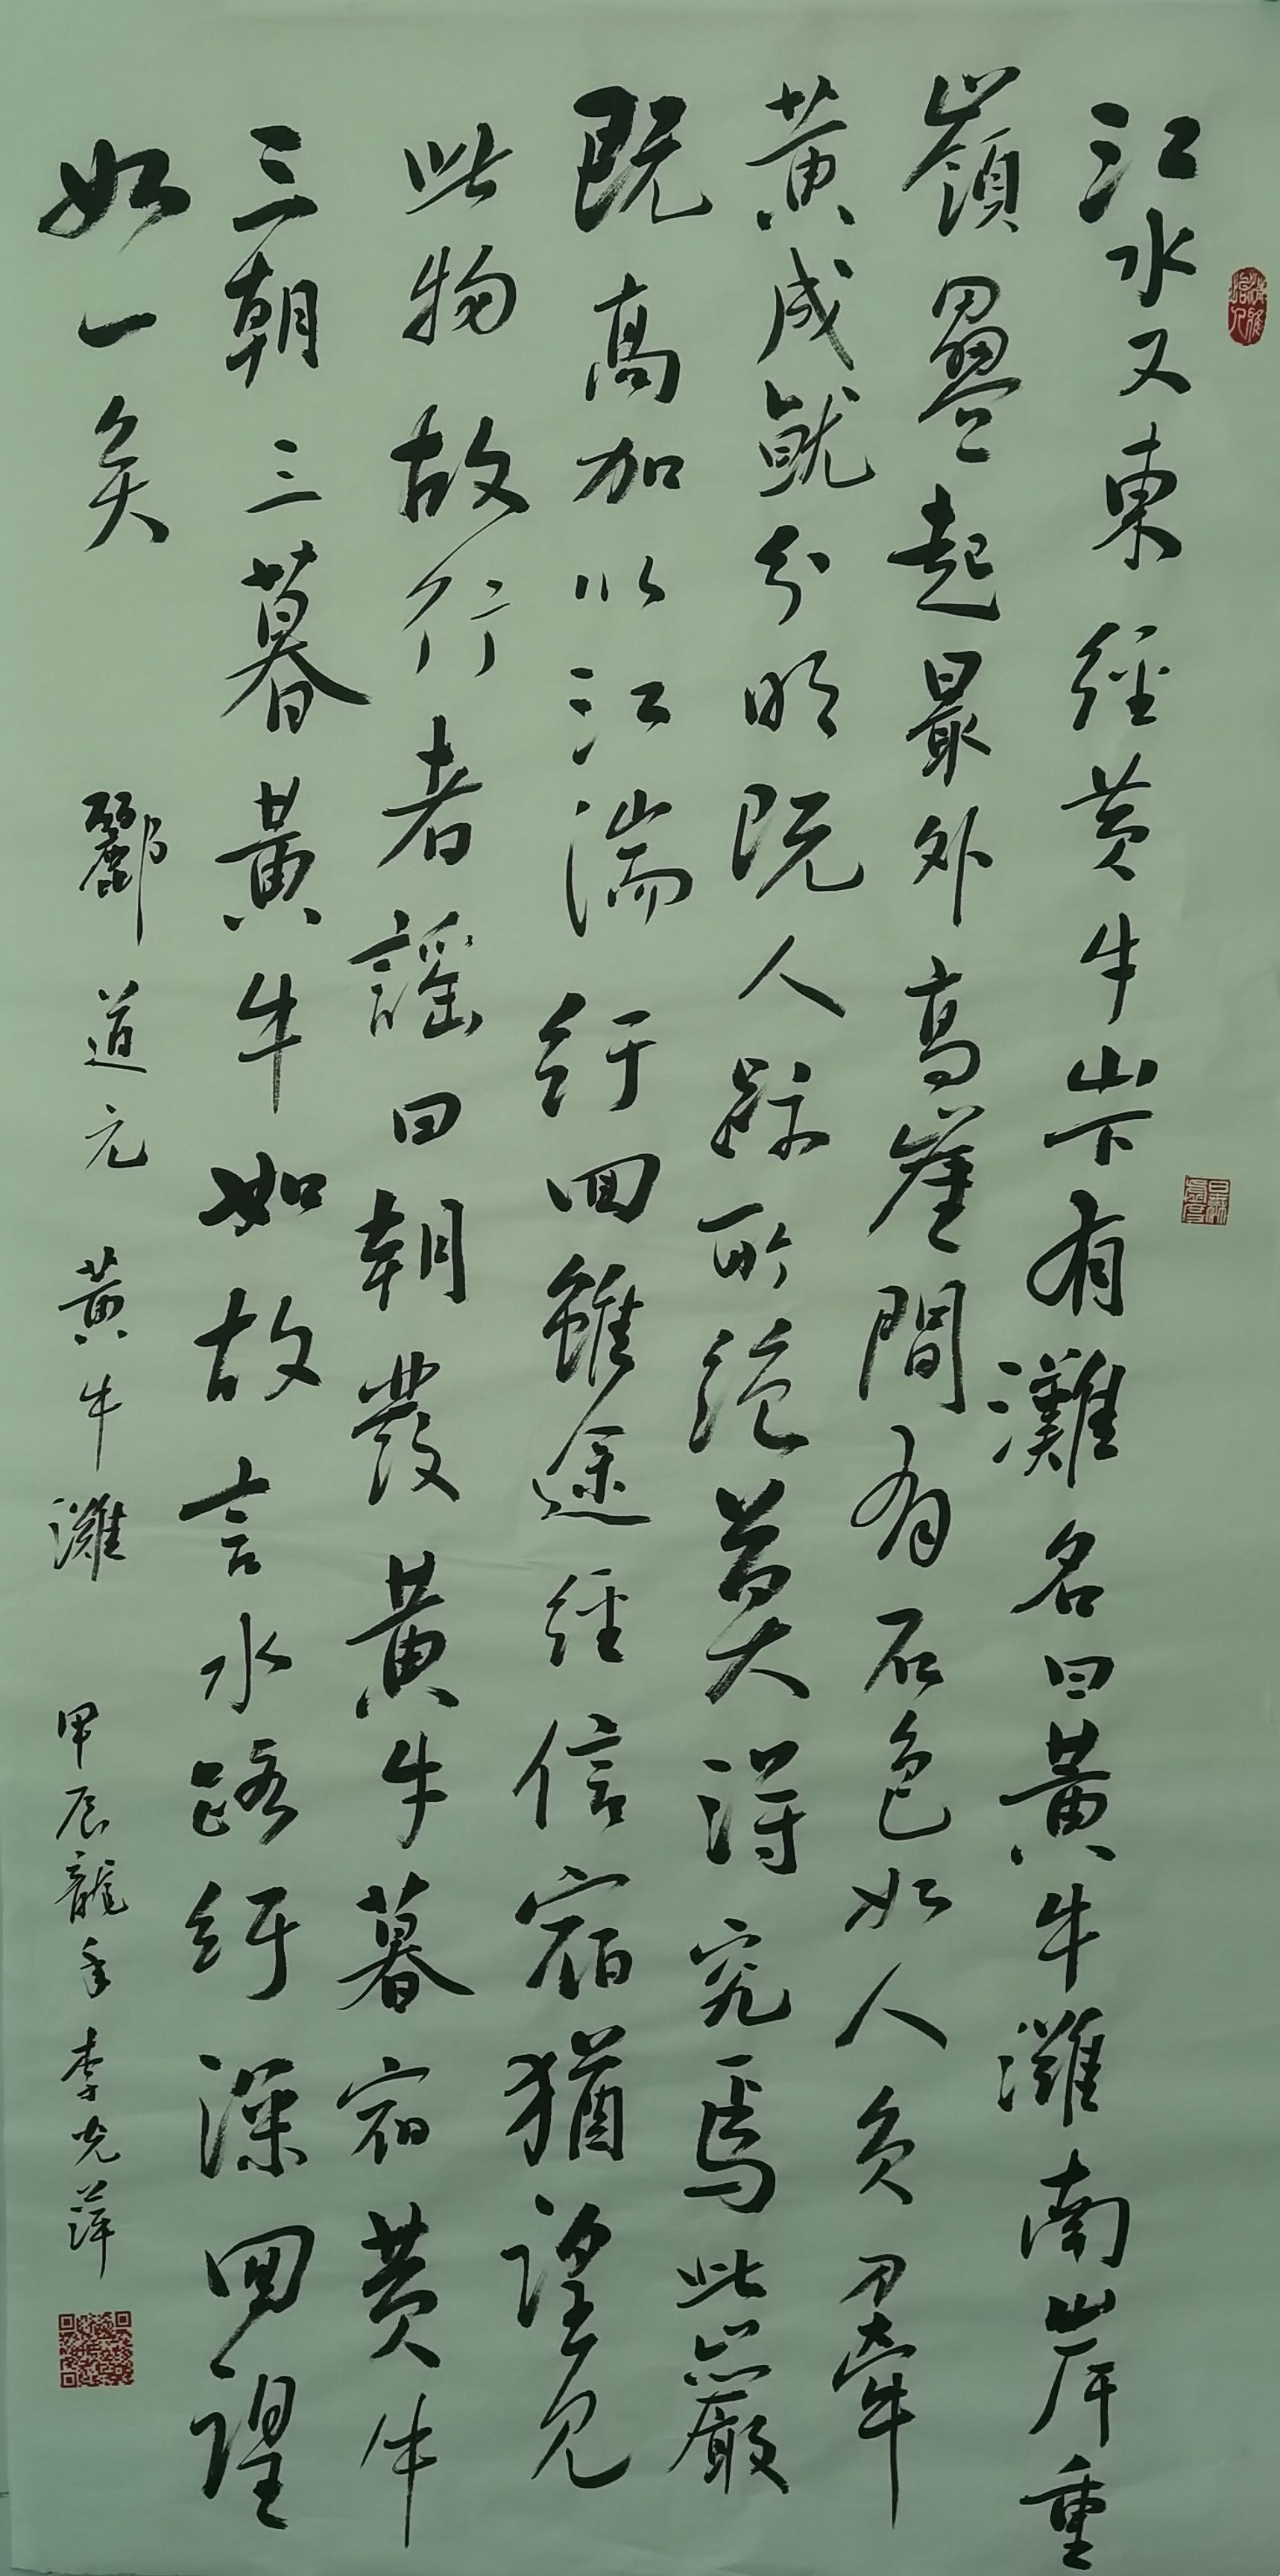 江水又東經黄牛山下有灘名曰黃牛灘南岸重
嶺疊起最外高崖間有石色如人負刀牽
黄成就分明既人跡所絶莫得究焉此巖
既高加以江湍紆回雖途經信宿猶望見
此物故行者謡曰朝發黃牛暮宿黄牛
三朝三暮黃牛如故言水路紆深回望
如一矣
酈道元 黄牛灘 甲辰龍年李光萍